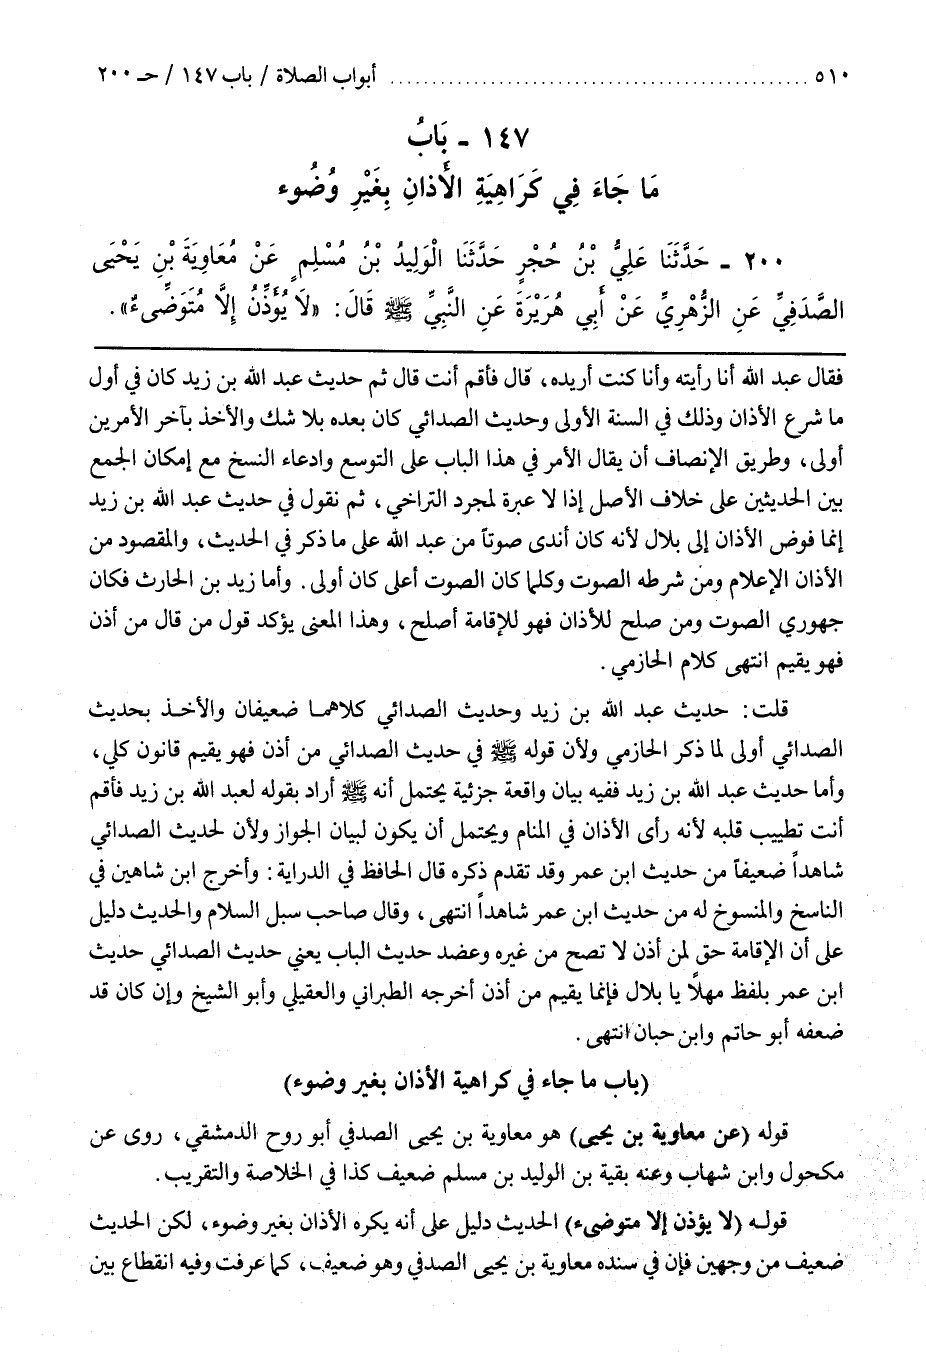 ٥١٠ ........................................ أبواب الصلاة / باب ١٤٧ / حـ ٢٠٠
١٤٧ ـ بَابُ
مَا جَاءَ فِي كَرَاهِيَةِ الأَذانِ بِغَيْرِ وُضُوء
٢٠٠ ـ حَدَّثَنَا عَلِيُّ بْنُ حُجْرٍ حَدَّثَنَا الْوَلِيدُ بْنُ مُسْلِمٍ عَنْ مُعَاوِيَةَ بْنِ يَحْيَى
الصَّدَفِيِّ عَنِ الزُّهْرِيِّ عَنْ أَبِي هُرَيْرَةَ عَنِ النَّبِيِّ ﷺ قَالَ: «لَا يُؤَذِّنُ إِلَّا مُتَوَضِّىءٌ».
فقال عبد الله أنا رأيته وأنا كنت أريده، قال فأقم أنت قال ثم حديث عبد الله بن زيد كان في أول
ما شرع الأذان وذلك في السنة الأولى وحديث الصدائي كان بعده بلا شك والأخذ بآخر الأمرين
أولى، وطريق الإنصاف أن يقال الأمر في هذا الباب على التوسع وادعاء النسخ مع إمكان الجمع
بين الحديثين على خلاف الأصل إذا لا عبرة لمجرد التراخي، ثم نقول في حديث عبد الله بن زيد
إنما فوض الأذان إلى بلال لأنه كان أندى صوتاً من عبد الله على ما ذكر في الحديث، والمقصود من
الأذان الإعلام ومن شرطه الصوت وكلما كان الصوت أعلى كان أولى. وأما زيد بن الحارث فكان
جهوري الصوت ومن صلح للأذان فهو للإقامة أصلح، وهذا المعنى يؤكد قول من قال من أذن
فهو يقيم انتهى كلام الحازمي.
قلت: حديث عبد الله بن زيد وحديث الصدائي كلاهما ضعيفان والأخذ بحديث
الصدائي أولى لما ذكر الحازمي ولأن قوله ﷺ في حديث الصدائي من أذن فهو يقيم قانون كلي،
وأما حديث عبد الله بن زيد ففيه بيان واقعة جزئية يحتمل أنه ﷺ أراد بقوله لعبد الله بن زيد فأقم
أنت تطييب قلبه لأنه رأى الأذان في المنام ويحتمل أن يكون لبيان الجواز ولأن لحديث الصدائي
شاهداً ضعيفاً من حديث ابن عمر وقد تقدم ذكره قال الحافظ في الدراية: وأخرج ابن شاهين في
الناسخ والمنسوخ له من حديث ابن عمر شاهداً انتهى، وقال صاحب سبل السلام والحديث دليل
على أن الإقامة حق لمن أذن لا تصح من غيره وعضد حديث الباب يعني حديث الصدائي حديث
ابن عمر بلفظ مهلاً يا بلال فإنما يقيم من أذن أخرجه الطبراني والعقيلي وأبو الشيخ وإن كان قد
ضعفه أبو حاتم وابن حبان انتهى.
(باب ما جاء في كراهية الأذان بغير وضوء)
قوله (عن معاوية بن يحيى) هو معاوية بن يحيى الصدفي أبو روح الدمشقي، روى عن
مكحول وابن شهاب وعنه بقية بن الوليد بن مسلم ضعيف كذا في الخلاصة والتقريب.
قوله (لا يؤذن إلا متوضىء) الحديث دليل على أنه يكره الأذان بغير وضوء، لكن الحديث
ضعيف من وجهين فإن في سنده معاوية بن يحيى الصدفي وهو ضعيف، كما عرفت وفيه انقطاع بين